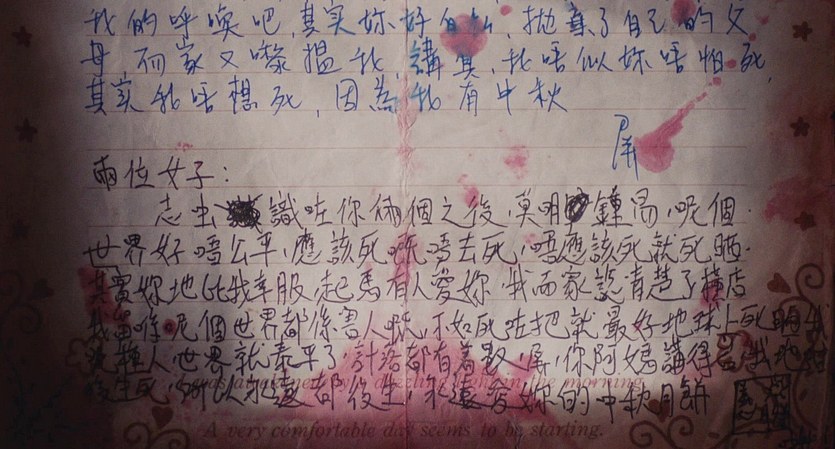 我的呼喚吧,其實妳好自私,拋棄了自己的父
母 而家又嚟搵我,講真,我唔似妳唔怕死,
其實我唔想死,因為我有中秋
屏
兩位女子:
志虫 識咗你倆個之後,莫明 鍾 ,呢個
世界好唔公平,應該死 唔去死,唔應該死就死晒
其實妳地比我幸服,起馬有人愛妳,我而家 清楚了
呢個世界都係害人 ,不如死咗把就最好地球上死
種人,世界就泰平了, 都有着數,屏,你阿媽講得 我地
後生死 所以永遠都後生,永遠愛妳的中秋月餅
in the morning
A very comfortable day seems to be starting.